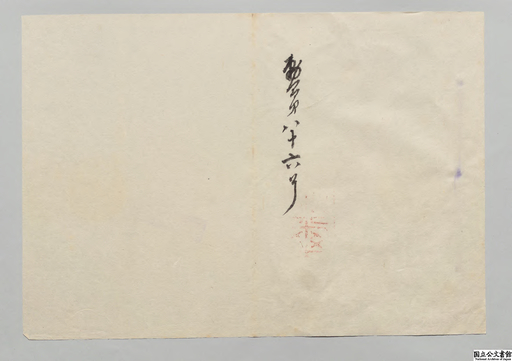 勅令第八十六号
国立公文書館
National Archives of Japan